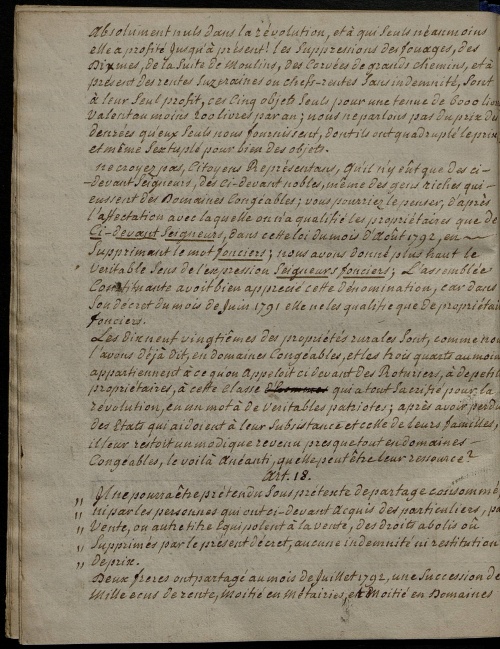 absolument nuls dans la révolution, et à qui seuls néanmoins
elle a profité jusqu'à présent! les Suppressions des fouages, des
Dixmes, de la Suite de Moulins, des Corvées de grands chemins, et à
présent des rentes Suzeraines ou chefs-rentes Sans indemnité, Sont
à leur Seul profit, ces Cinq objets Seuls pour une tenue de 6000 lion
valent au moins 200 livres par an; nous ne parlons pas du prix des
denrées qu'eux Seuls nous fournissent, dont ils ont quadruplé le prix
et même Sextuplé pour bien des objets.
ne croyez pas, Citoyens Représentans, qu'il n'y eût que des ci-
-devant Seigneurs, des Ci-devant nobles, même des gens riches qui
eussent des Domaines Congéables; vous pourriez le penser, d'après
l'affectation avec laquelle on n'a qualifié les propriétaires que de
Ci-devant Seigneurs, dans cette loi du mois d'Août 1792, en
Supprimant le mot fonciers; nous avons donné plus haut le
veritable Sens de l'expression Seigneurs fonciers; L'assemblée
Constituante avoit bien apprécié cette dénomination, car dans
Son décret du mois de Juin 1791 elle ne les qualifie que de propriétair
fonciers.
Les dix neuf vingtièmes des propriétés rurales Sont, comme nou
l'avons déjà dit, en domaines Congéables, et les trois quarts au moin
appartiennent à ce qu'on appeloit ci devant des Roturiers, à de petit
propriétaires, à cette classe d'hommes qui a tout Sacrifié pour la
révolution, en un mot à de veritables patriotes; après avoir perdu
des Etats qui aidoient à leur Subsistance et celle de leurs familles,
il leur restoit un modique revenu presque tout en domaines
Congéables, le voilà anéanti, quelle peut être leur ressource?
Art. 18.
„ Il ne pourra être prétendu Sous prétexte de partage consommé,
„ ni par les personnes qui ont ci-devant acquis des particuliers, pa
„ Vente, ou autre titre Equipolent à la vente, des Droits abolis ou
„ Supprimés par le présent décret, aucune indemnité ni restitution
„ de prix.
Deux freres ont partagé au mois de Juillet 1792, une Succession de
Mille ecus de rente, moitié en Métairies, et Moitié en Domaines